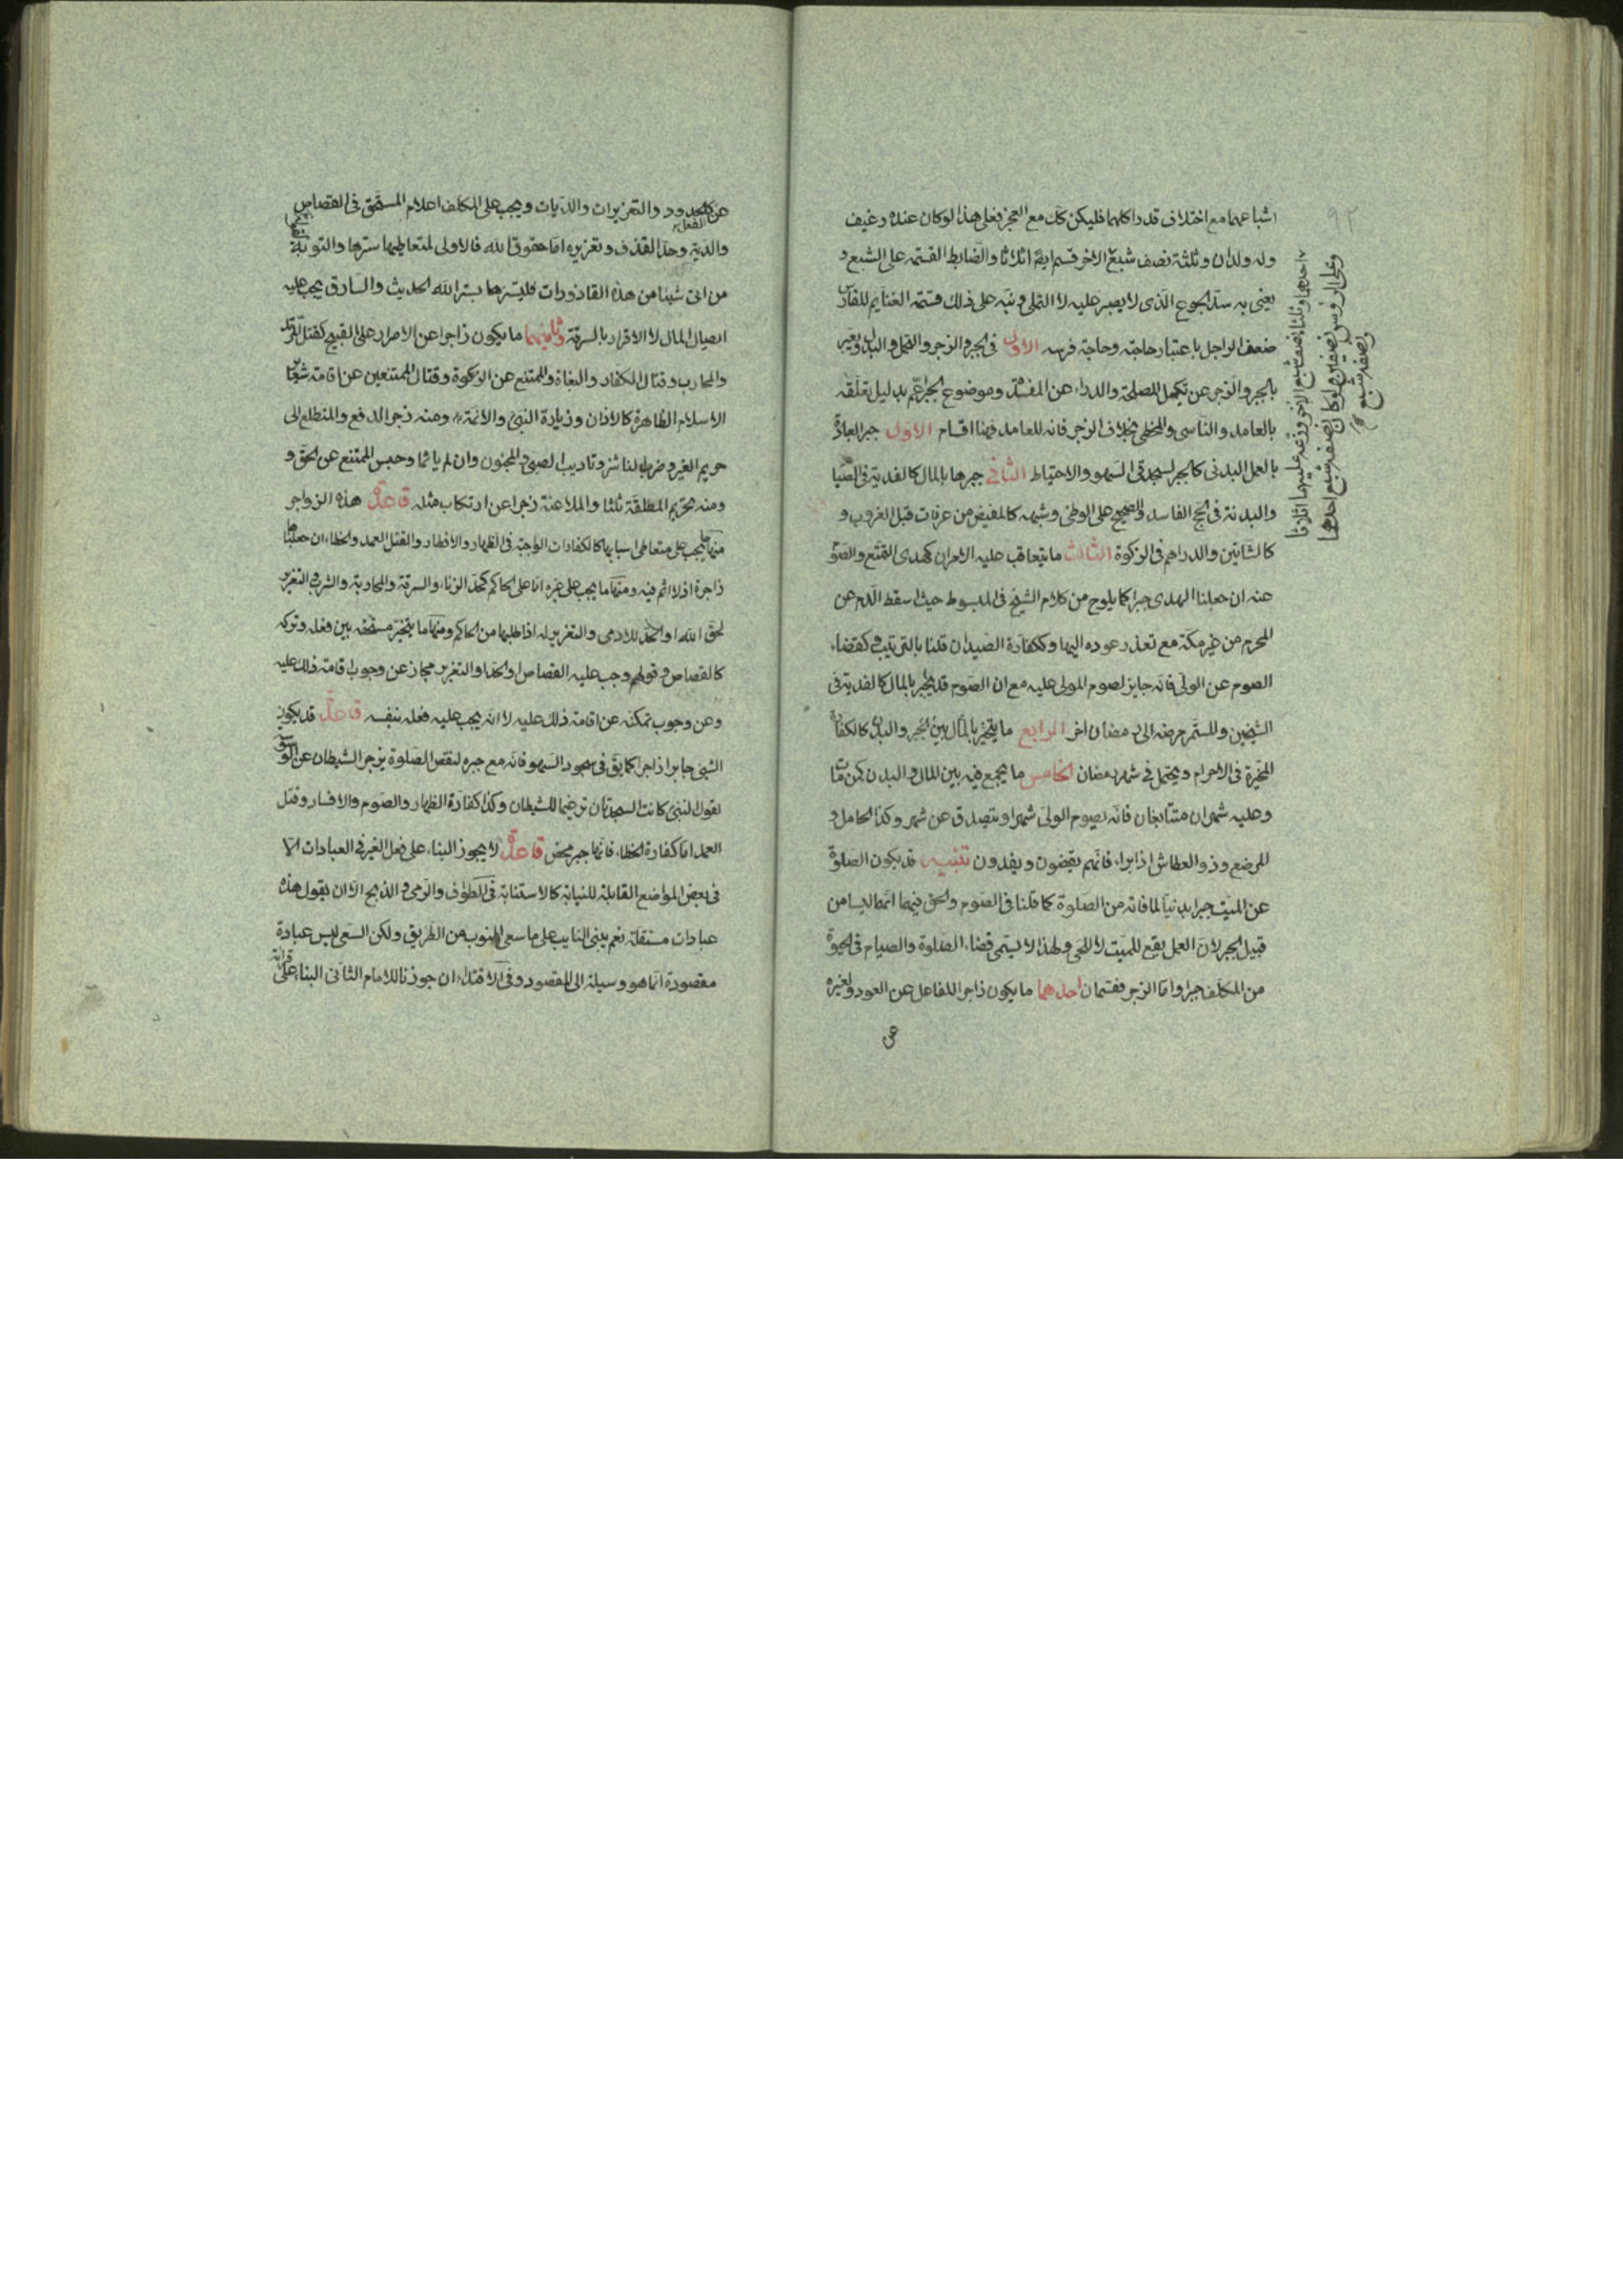 اشباعهما مع اختلاف قدر اكلهما فليكن كك مع العجز فعلى هذا لو كان عنده رغيف
وله ولدان وثلثه نصف شبع الاخر قسم بينهما اثلاثا والضابط القسمة على الشبع و
يعنى به سد الجوع الذى لا يصبر عليه لا التملى ونبه على ذلك قسمة الغنايم للفارس
ضعف الراجل باعتبار حاجته وحاجة فرسه الاول فى الجبر والزجر والنقل والبدل ويعبر
بالجبر والزجر عن تكميل المصلحة والدراء عن المفسدة وموضوع الجبر اعم بدليل تعلقه
بالعامد والناسى والمخطى بخلاف الزجر فانه للعامد فهنا اقسام الاول جبر العبادة
بالعمل البدنى كالجبر لسجدتى السهو والاحتياط الثانى جبرها بالمال كالفدية فى الصيام
والبدنة فى الحج الفاسد والصحيح على الوطى وشبهه كالمفيض من عرفات قبل الغروب و
كالشاتين والدراهم فى الزكوة الثالث ما يتعاقب عليه الامران كهدى التمتع والصوم
عنه ان جعلنا الهدى جبرا كما يلوح من كلام الشيخ فى المبسوط حيث اسقط الدم عن
المحرم من غير مكة مع تعذر عوده اليها وككفارة الصيد ان قلنا بالترتيب وكقضاء
الصوم عن الولى فانه جايز لصوم المولى عليه مع ان الصوم قد يجبر بالمال كالفدية فى
الشيخين وللمستمر مرضه الى رمضان اخر الرابع ما يتخير بالمال بين الجبر والبدن كالكفارة
المخيرة فى الاحرام ويحتمل فى شهر رمضان الخامس ما يجمع فيه بين المال والبدن كمن مات
وعليه شهران متتابعان فانه يصوم الولى شهرا ويتصدق عن شهر وكذا الحامل و
المرضع وذو العطاش اذا برا، فانهم يقضون ويفدون تنبيه قد يكون الصلوة
عن الميت جبرا بدنيا لما فاته من الصلوة كما قلنا فى الصوم والحق فيهما انهما ليسا من
قبيل الجبر لان العمل يقع للميت لا للحى ولهذا لا يسمى قضاء، الصلوة والصيام فى الحيوة
من المكلف جبرا واما الزجر فقسمان احدهما ما يكون زاجرا للفاعل عن العود ولغيره
عن
احدهما وثلثاه نصف شبع الاخر وزعه عليهما اثلاثا
وعلى الرؤس نصفين ولو كان نصفه شبع احدهما
ونصفه شبع
عن الفعل كالحدود والتعزيرات والديات ويجب على المكلف اعلام المستحق فى القصاص
والدية وحد القذف وتعزيره اما حقوق الله فالاولى لمتعاطيها سترها والتوبة
من اتى شيئا من هذه القاذورات فليسترها بستر الله الحديث والسارق يجب عليه
ايصال المال لا الاقرار بالسرقة وثانيهما ما يكون زاجرا عن الاصرار على القبيح كقتل المرتد
والمحارب وقتال الكفار والبغاة والممتنع عن الزكوة وقتال الممتنعين عن اقامة شعائر
الاسلام الظاهرة كالاذان وزيارة النبى والائمة ومنه زجر الدفع والمتطلع الى
حريم الغير وضرب الناشز وتاديب الصبى والمجنون وان لم ياثما وحبس الممتنع عن الحق و
ومنه تحريم المطلقة ثلثا والملاعنة زجرا عن ارتكاب مثله قاعدة هذه الزواجر
منها ما يجب على متعاطى اسبابها كالكفارات الواجبة فى الظهار والافطار والقتل العمد والخطا، ان جعلناها
زاجرة اذ لا اثم فيه ومنها ما يجب على غيره اما على الحاكم كحد الزنا، والسرقة والمحاربة والشرب والتعزير
لحق الله او الحد للادمى والتعزير له اذا طلبها من الحاكم ومنها ما يتخير مستحقه بين فعله وتركه
كالقصاص وقولهم وجب عليه القصاص او الحد او التعزير مجاز عن وجوب اقامة ذلك عليه
وعن وجوب تمكنه عن اقامة ذلك عليه لا انه يجب عليه فعله بنفسه قاعدة قد يكون
الشىء جابرا زاجرا كما يق فى سجود السهو فانه مع جبره لنقص الصلوة يزجر الشيطان عن الوسوسة
لقول النبى كانت السجدتان ترغيما للشيطان وكذا كفارة الظهار والصوم والافساد وقتل
العمد اما كفارة الخطا، فانها جبر محض قاعدة لا يجوز البناء، على فعل الغير فى العبادات الا
فى بعض المواضع القابلة للنيابة كالاستنابة فى الطواف والرمى والذبح الا ان يقول هذه
عبادات مستقلة نعم يبنى النايب على ما سعى المنوب من الطريق ولكن السعى ليس عبادة
مقصودة انما هو وسيلة الى المقصود وفى الاقتداء، ان جوزنا للامام الثانى البناء على قراءة